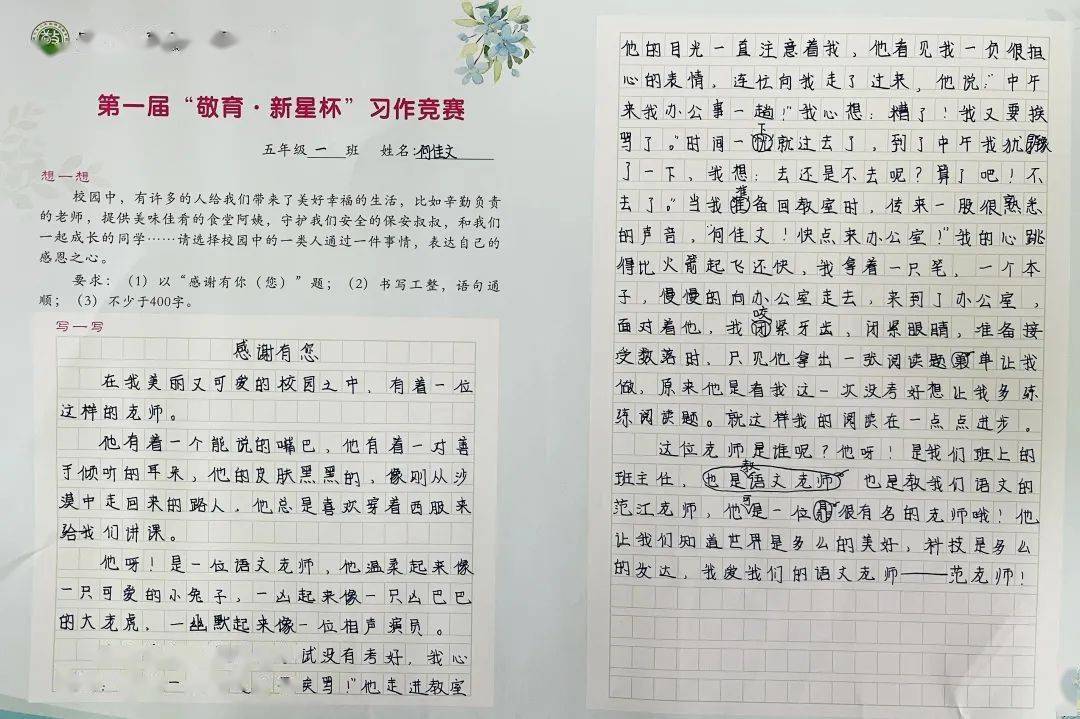 第一届“敬育·新星杯”习作竞赛
五年级一班 姓名:何佳文
想一想
校园中，有许多的人给我们带来了美好幸福的生活，比如辛勤负责
的老师，提供美味佳肴的食堂阿姨，守护我们安全的保安叔叔，和我们
一起成长的同学……请选择校园中的一类人通过一件事情，表达自己的
感恩之心。
要求：（1）以“感谢有你（您）”题；（2）书写工整，语句通
顺；（3）不少于400字。
写一写
感谢有您
在我美丽又可爱的校园之中，有着一位
这样的老师。
他有着一个能说的嘴巴，他有着一对善
于倾听的耳来，他的皮肤黑黑的，像刚从沙
漠中走回来的路人，他总是喜欢穿着西服来
给我们讲课。
他呀！是一位语文老师，他温柔起来像
一只可爱的小兔子，一凶起来像一只凶巴巴
的大老虎，一幽默起来像一位相声演员。
试没有考好，我心
骂！”他走进教室
他的目光一直注意着我，他看见我一负很担
心的表情，连忙向我走了过来，他说：“中午
来我办公事一趟！”我心想：糟了！我又要挨
骂了。”时间一下就过去了，到了中午我犹豫
了一下，我想：去还是不去呢？算了吧！不
去了。”当我准备回教室时，传来一股很熟悉
的声音，“何佳文！快点来办公室！”我的心跳
得比火箭起飞还快，我拿着一只笔，一个本
子，慢慢的向办公室走去，来到了办公室，
面对着他，我咬紧牙齿，闭紧眼睛，准备接
受数落时，只见他拿出一张阅读题单让我
做，原来他是看我这一次没考好想让我多练
练阅读题。就这样我的阅读在一点点进步。
这位老师是谁呢？他呀！是我们班上的
班主任，也是教语文老师 也是教我们语文的
范江老师，他可是一位很有名的老师哦！他
让我们知道世界是多么的美好，科技是多么
的发达，我爱我们的语文老师——范老师！